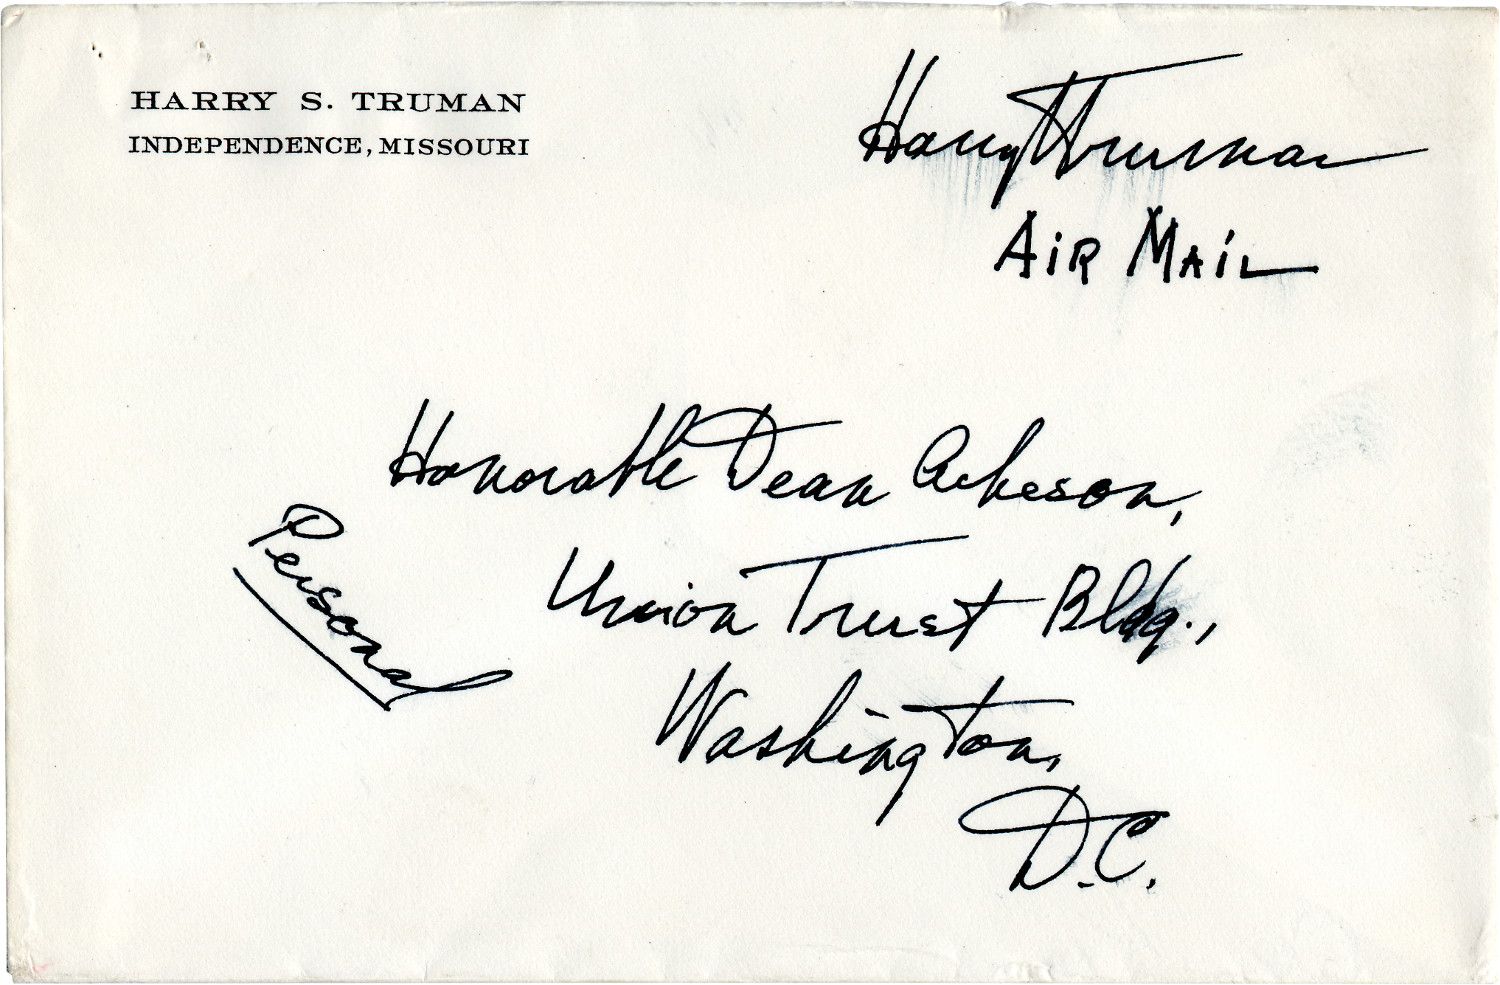 HARRY S. TRUMAN
INDEPENDENCE, MISSOURI
Harry Truman
AIR MAIL
Honorable Dean Acheson,
Personal
Union Trust Bldg.,
Washington,
D.C.